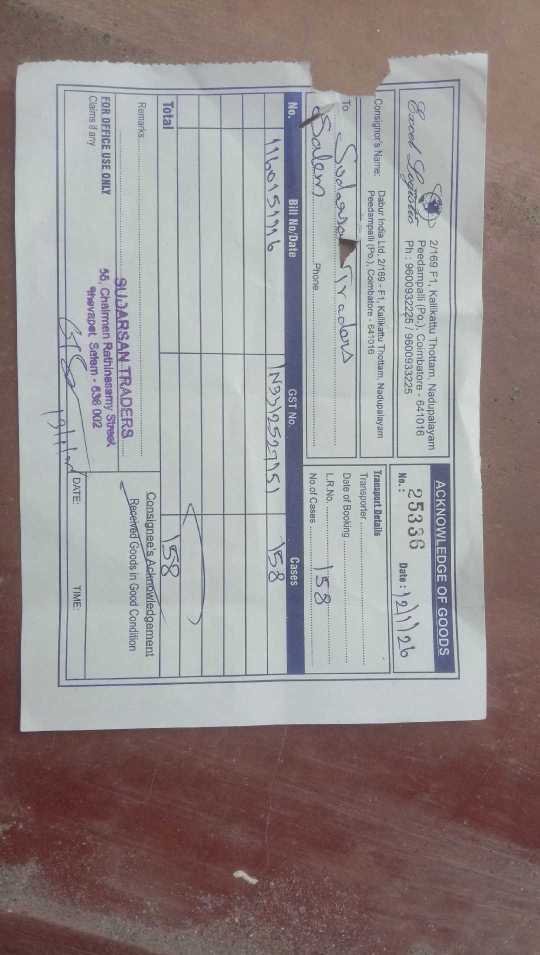 Excel Logistic
2/169 F1, Kallikattu Thottam, Nadupalayam
Peedampalli (Po.), Coimbatore - 641016
Ph : 9600932225 / 9600933225
ACKNOWLEDGE OF GOODS
No. : 25336 Date : 12/1/26
Consignor's Name: Dabur India Ltd, 2/169 - F1, Kallikattu Thottam, Nadupalayam
Peedampalli (Po.), Coimbatore - 641016
To Sudarsan Traders
Salem
Phone
Transport Details
Transporter
Date of Booking
L.R.No.
No.of Cases 158
No. Bill No/Date GST No. Cases
158
Total 158
Remarks
Consignee's Acknowledgement
Received Goods in Good Condition
FOR OFFICE USE ONLY
Claims if any
SUDARSAN TRADERS
55, Chairman Rathinasamy Street
Shevapet, Salem - 636 002
DATE: TIME: